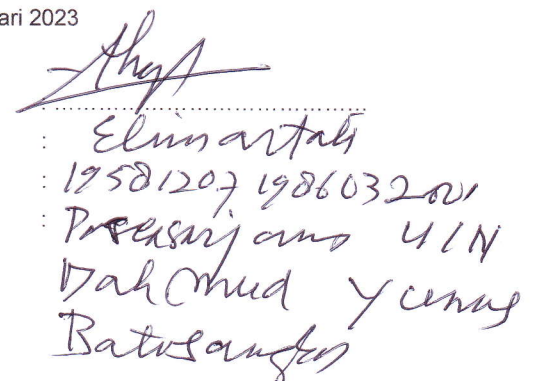 ari 2023
: Elimartati
: 19581207 198603 2001
: Pascasarjana UIN
Mahmud Yunus
Batusangkar